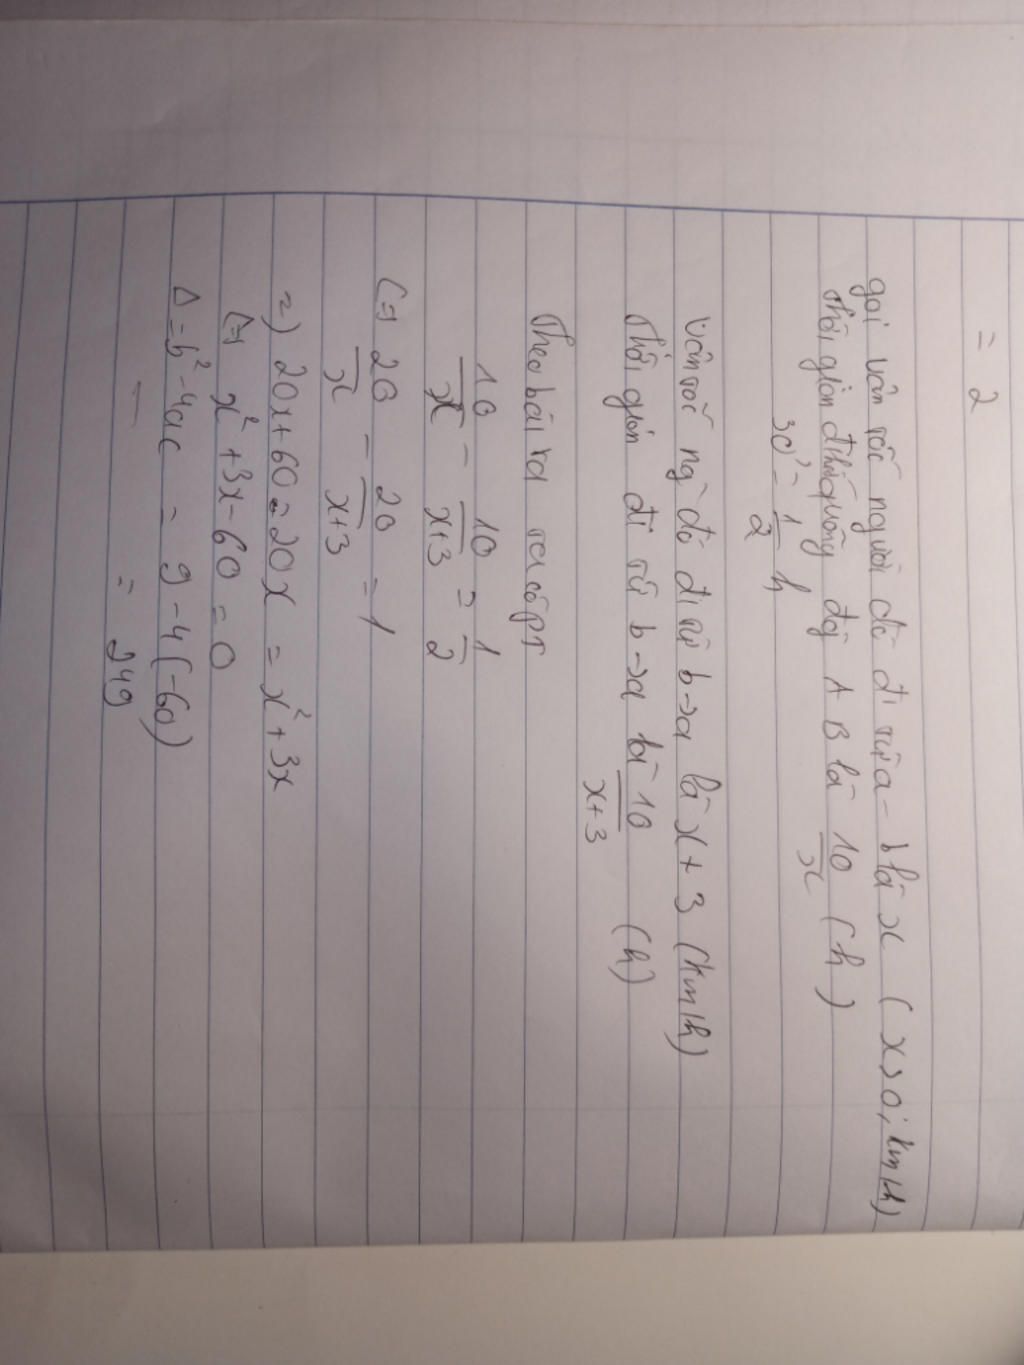 = 2
gọi vân tốc người đó đi từ a - b là x ( x > 0 ; km/h)
thời gian đi hết quãng đg A B là 10/x ( h )
30' = 1/2 h
Vân tốc ng` đó đi từ b → a là x + 3 (km/h)
thời gian đi từ b → a là 10/x+3 (h)
theo bài ra ta có pt
10/x - 10/x+3 = 1/2
(=) 20/x - 20/x+3 = 1
=) 20x + 60 - 20x = x² + 3x
(=) x² + 3x - 60 = 0
Δ = b² - 4ac = 9 - 4(-60)
= 249